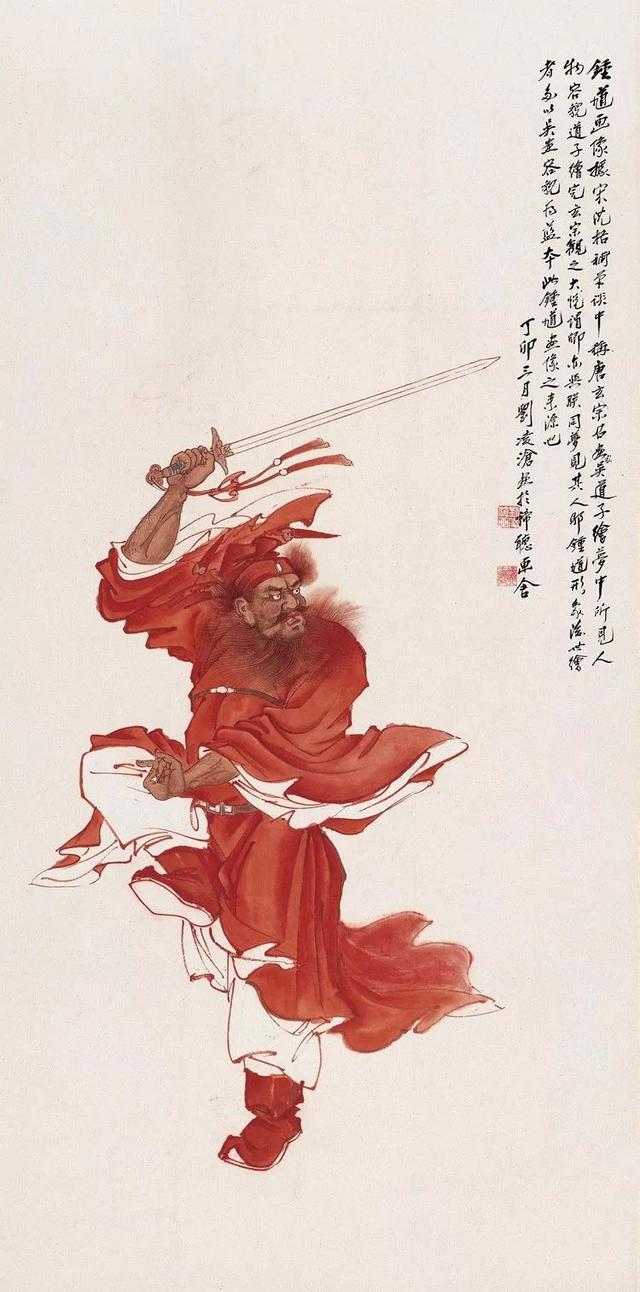 鍾馗画像據宋沈括補筆谈中稱唐玄宗召畫吴道子繪夢中所見人
物容貌道子繪完玄宗觀之大悦謂卿亦與朕同夢見其人耶鍾馗形象後世繪
者多以吴畫容貌為藍本此鍾馗画像之来源也
丁卯三月劉凌滄畫於画舍